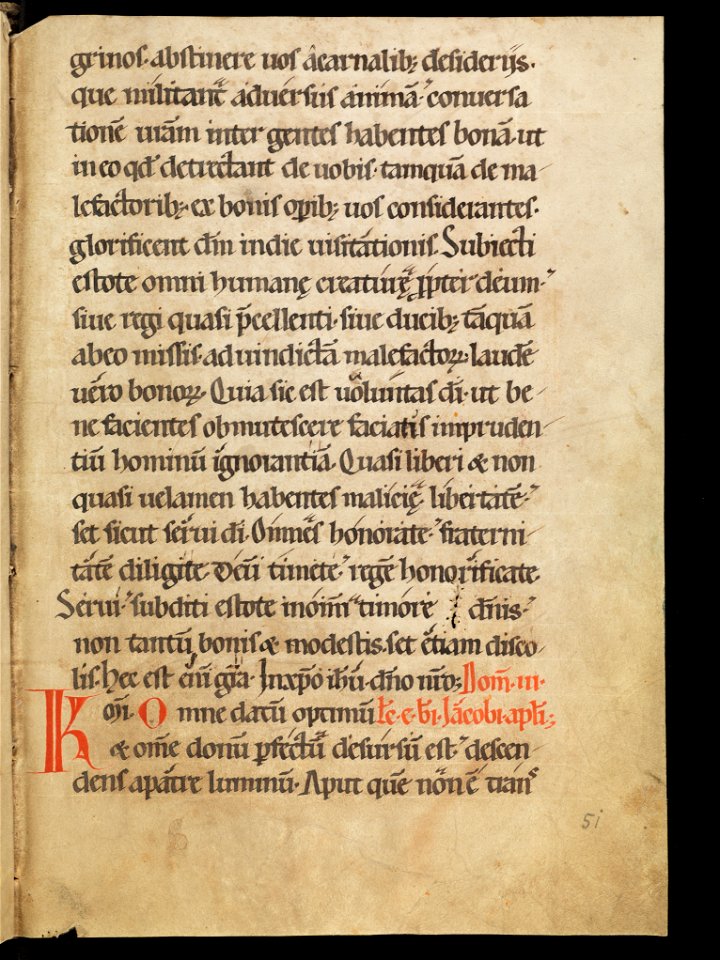 grinos· abstinere uos a carnalib; desiderijs·
que militant̄ aduersus animā· conuersa
tionē ur̄am inter gentes habentes bonā· ut
in eo qđ detrectant de uobis· tamquā de ma-
lefactorib; ex bonis opib; uos considerantes·
glorificent dm̄ in die uisitationis. Subiecti
estote omni humanę creaturę ppter deum·
siue regi quasi p̄cellenti· siue ducib; tāquā
ab eo missis· ad uindictā malefactoꝝ· laudē
uero bonoꝝ. Quia sic est uoluntas dī· ut be-
ne facientes obmutescere faciatis impruden-
tiū hominū ignorantiā. Quasi liberi & non
quasi uelamen habentes malicię libertatē·
set sicut serui dī. Omnes honorate· fraterni-
tatē diligite· Deū timete· regē honorificate.
Serui· subditi estote in om̄i timore dn̄is·
non tantū bonis & modestis· set etiam disco-
lis. Hec est enī gr̄a. In xp̄o ih̄u· dn̄o nr̄o; Dom̄· iii·
Km̄i· Omne datū optimū Lc̄· e· bī· Jacobi· apłi;
& om̄e donū pfectū desursū est· descen-
dens a patre luminū· Aput quē non ē trans
51